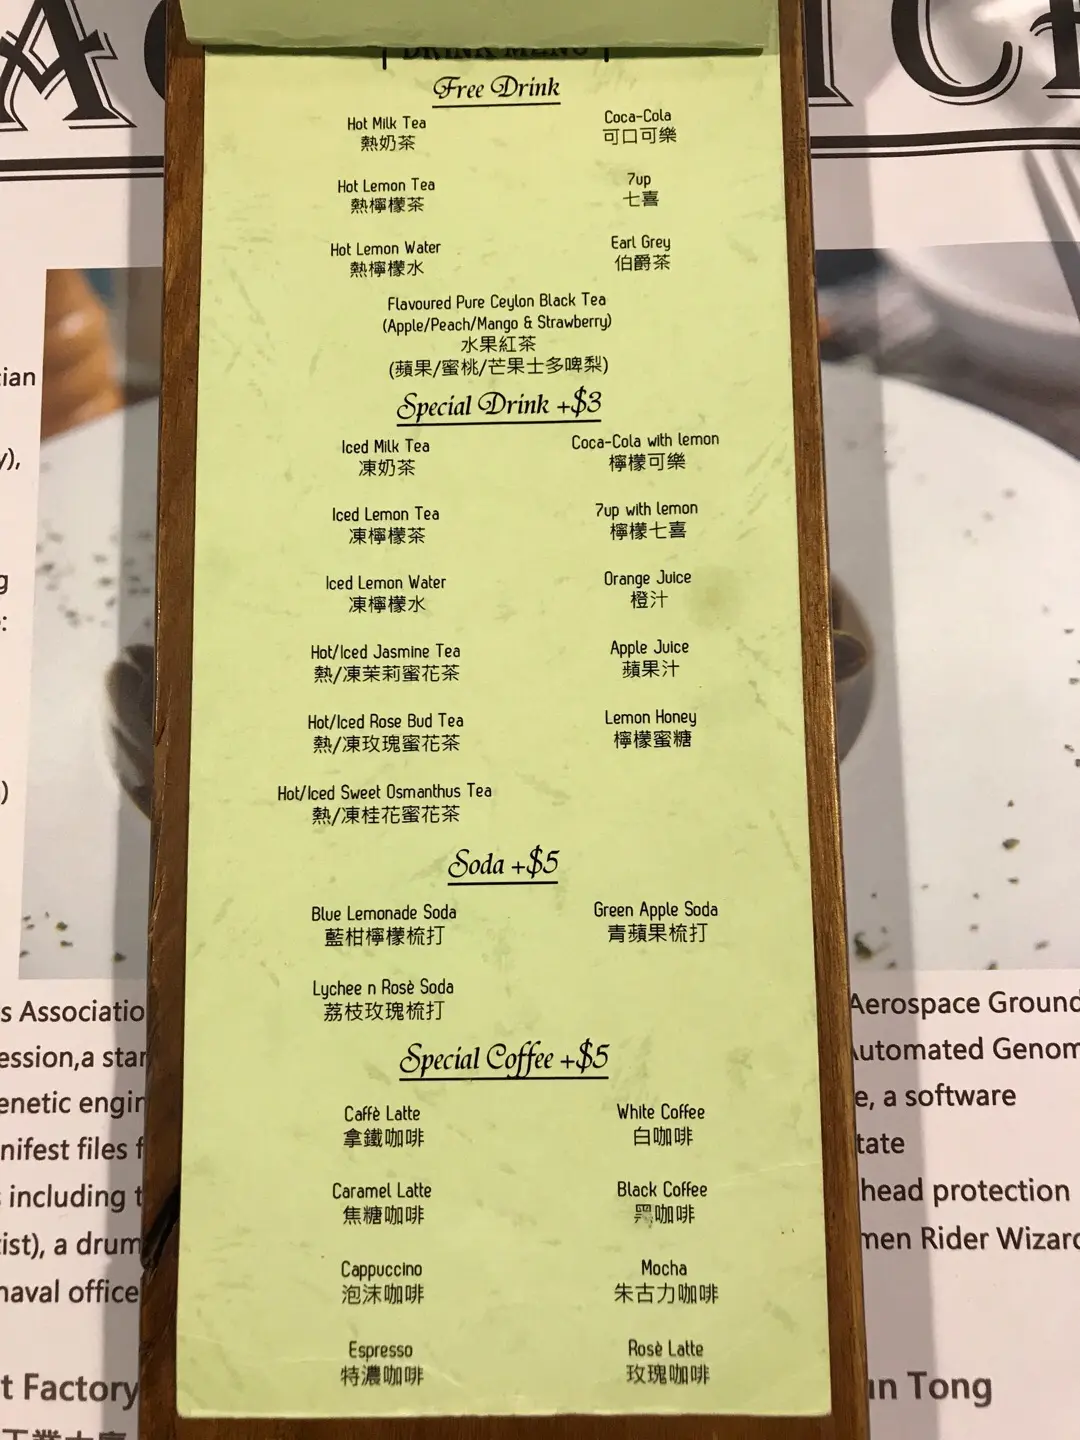 DRINK MENU
Free Drink
Hot Milk Tea
熱奶茶
Coca-Cola
可口可樂
Hot Lemon Tea
熱檸檬茶
7up
七喜
Hot Lemon Water
熱檸檬水
Earl Grey
伯爵茶
Flavoured Pure Ceylon Black Tea
(Apple/Peach/Mango & Strawberry)
水果紅茶
(蘋果/蜜桃/芒果士多啤梨)
Special Drink +$3
Iced Milk Tea
凍奶茶
Coca-Cola with lemon
檸檬可樂
Iced Lemon Tea
凍檸檬茶
7up with lemon
檸檬七喜
Iced Lemon Water
凍檸檬水
Orange Juice
橙汁
Hot/Iced Jasmine Tea
熱/凍茉莉蜜花茶
Apple Juice
蘋果汁
Hot/Iced Rose Bud Tea
熱/凍玫瑰蜜花茶
Lemon Honey
檸檬蜜糖
Hot/Iced Sweet Osmanthus Tea
熱/凍桂花蜜花茶
Soda +$5
Blue Lemonade Soda
藍柑檸檬梳打
Green Apple Soda
青蘋果梳打
Lychee n Rosè Soda
荔枝玫瑰梳打
Special Coffee +$5
Caffè Latte
拿鐵咖啡
White Coffee
白咖啡
Caramel Latte
焦糖咖啡
Black Coffee
黑咖啡
Cappuccino
泡沫咖啡
Mocha
朱古力咖啡
Espresso
特濃咖啡
Rosè Latte
玫瑰咖啡
s Associatio
ession,a star
enetic engin
nifest files f
including t
ist), a drum
naval office
t Factory
Aerospace Ground
Automated Genom
e, a software
tate
head protection
men Rider Wizard
un Tong